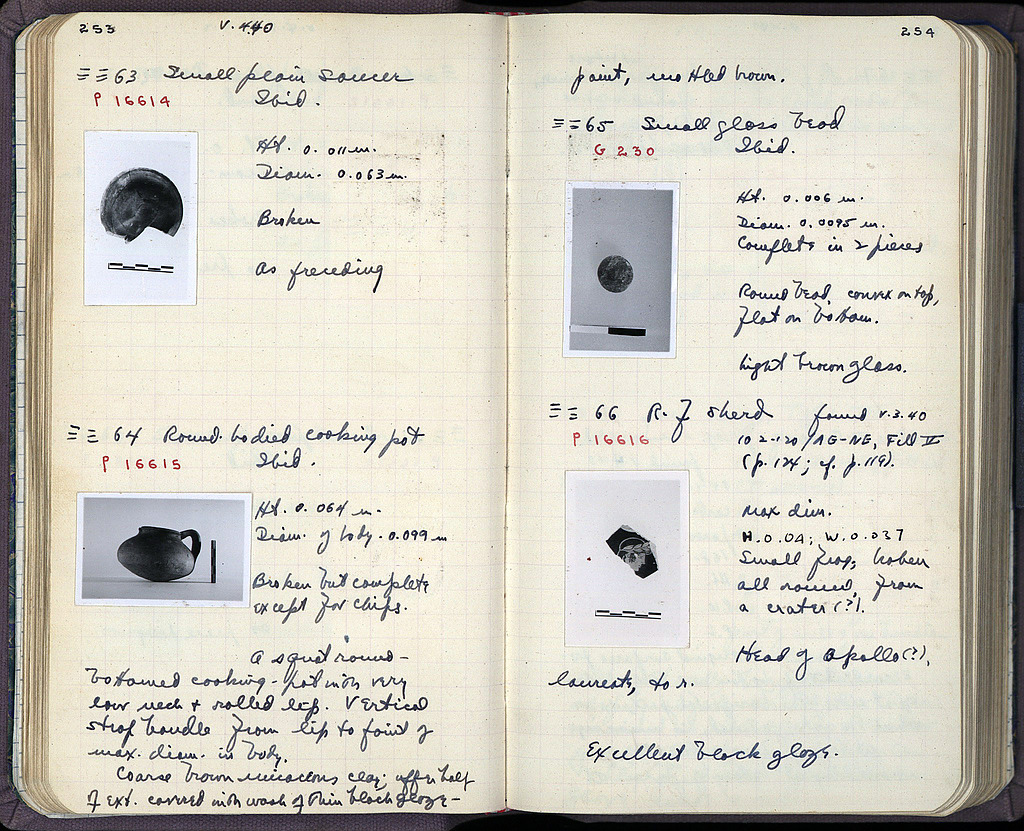 253
V. 4.40
63 Small plain saucer
P 16614
Ibid.
Ht. 0.011 m.
Diam. 0.063 m.
Broken
As preceding
64 Round-bodied cooking pot
P 16615
Ibid.
Ht. 0.064 m.
Diam. of body. 0.099 m
Broken but complete
except for chips.
A squat round-
bottomed cooking-pot with very
low neck + rolled lip. Vertical
strap handle from lip to point of
max. diam. in body.
Coarse brown micaceous clay; upper half
of ext. covered with wash of thin black glaze-
254
paint, mottled brown.
65 Small glass bead
G 230
Ibid.
Ht. 0.006 m.
Diam. 0.0095 m.
Complete in 2 pieces
Round bead, convex on top,
flat on bottom.
Light brown glass.
66 R. F sherd found V.3.40
P 16616
102-120/AE-NE, Fill II
(p. 124; cf. p. 119).
Max dim.
H. 0.04; W. 0.037
Small frag, broken
all round, from
a crater (?).
Head of Apollo (?),
laureate, to r.
Excellent black glaze.